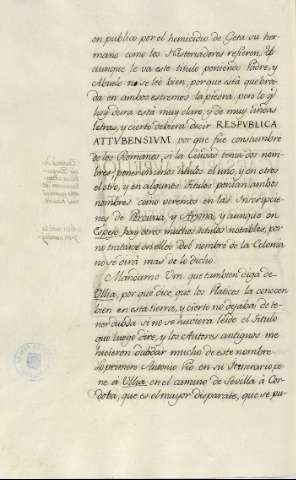 en publico por el homicidio de Geta su her-
mano como los Historiadores refieren, Y
aunque le va este titulo poniendo Padre, y
Abuelo no se lee bien, porque està quebra-
da en ambos estremos la piedra, pero lo q̃
hoy dura està muy claro, y de muy lindas
letras, y cierto debiera decir RESPVBLICA
ATTVBENSIVM por que fue constumbre
de los Romanos, si la Ciudad tenia dos nom-
bres, poner en unos titulos el uno, y en otros
el otro, y en algunos titulos ponian ambos
nombres como veremos en las Inscripcio-
nes de Porcuna, y Arjona, y aunque en
Espejo hay otros muchos titulos notables, por
no tratarse en ellos del nombre de la Colonia
no se dirà mas de lo dicho.
Mandame Vm. que tambien diga de
Ullia, por que dice, que los Platicos la conocen
bien en esta tierra, y cierto no dejaba de te-
ner dubda si no se huviera leido el titulo
que luego dire, y los Autores antiguos me
hicieron dubdar mucho de este nombre
Lo primero Antonio Pio en su Itinerario po-
ne a Ullia en el camino de Sevilla à Cor-
doba, que es el mayor disparate, que se pu-